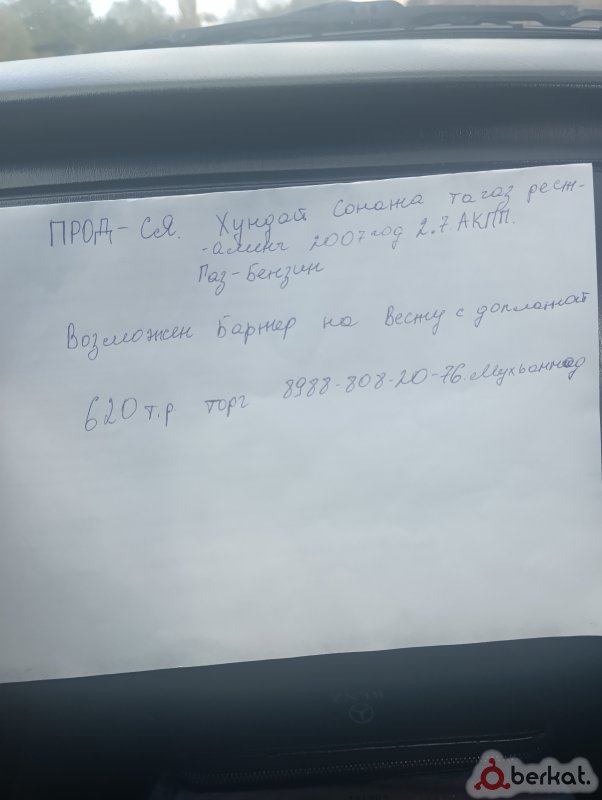 ПРОД-СЯ. Хундай Соната тагаз рест-
-алинг 2007год 2.7. АКПП.
Газ-Бензин
Возможен Бартер на Весту с доплатой
620 т.р торг 8988-808-20-76. Мухьаммад
berkat.